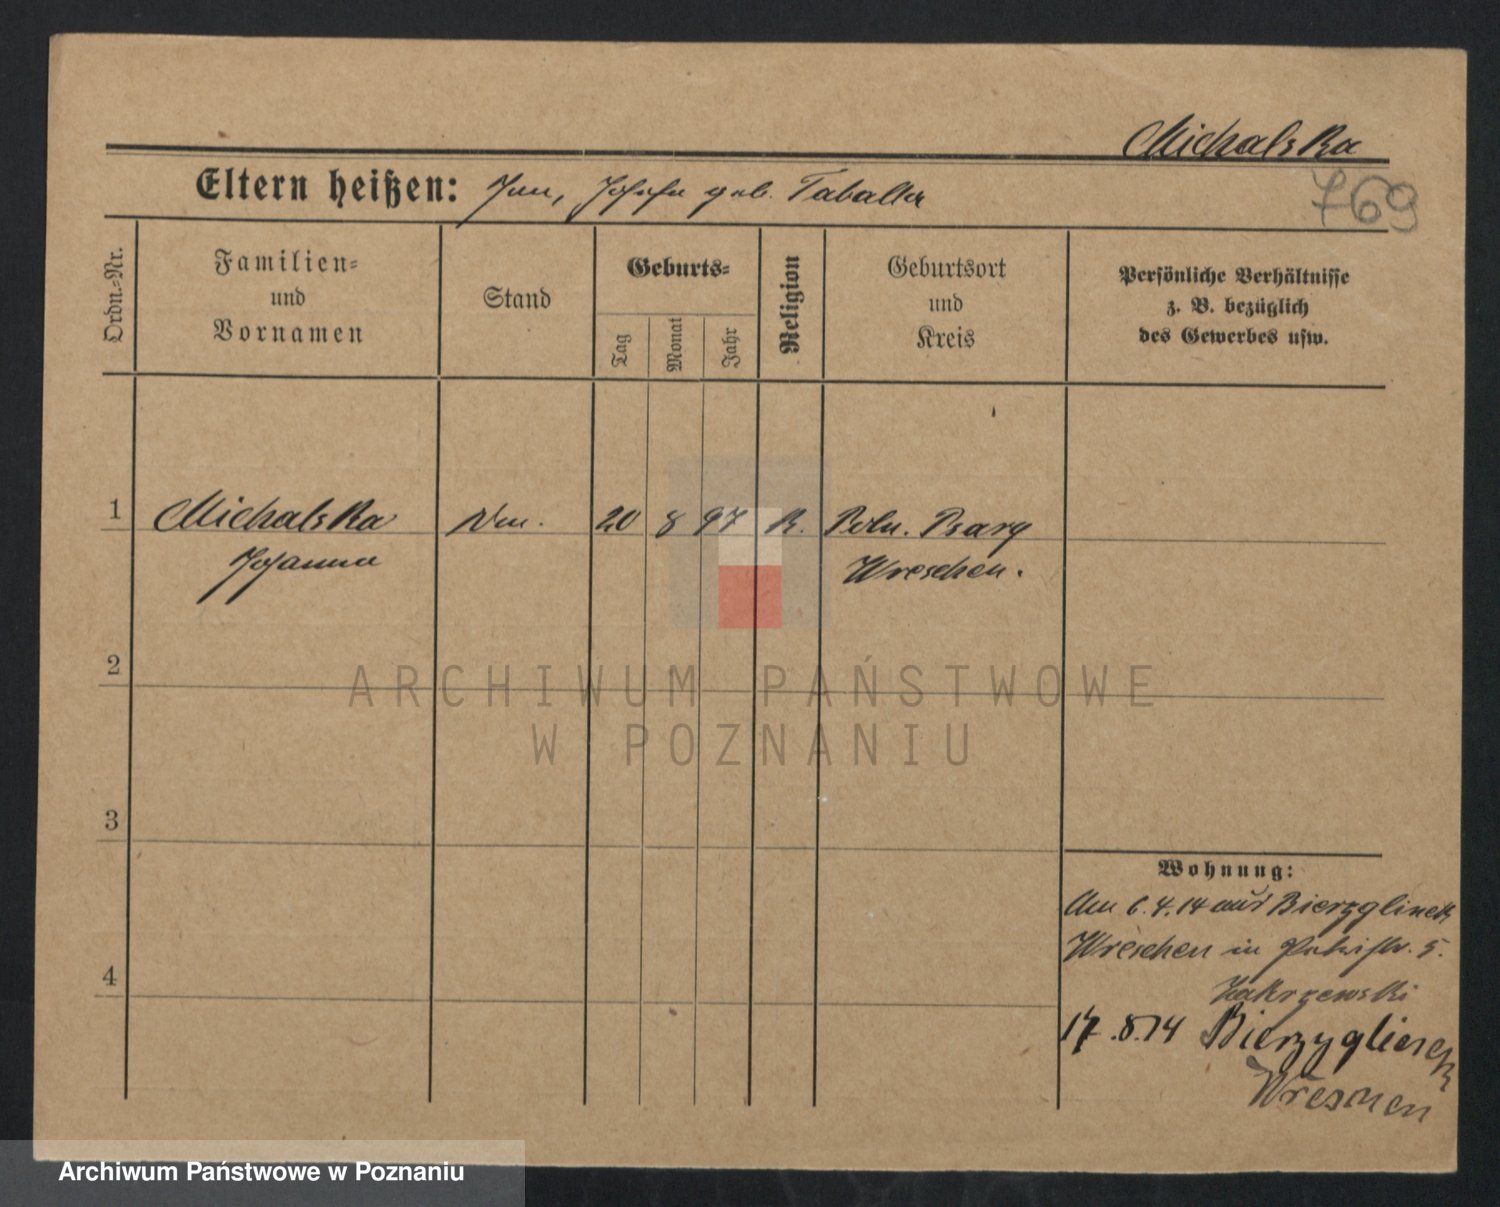 Michalska
769
Eltern heißen: Jan, Josefa geb. Taballa
Ordn.=Nr.
Familien=
und
Vornamen
Stand
Geburts=
Tag
Monat
Jahr
Religion
Geburtsort
und
Kreis
Persönliche Verhältnisse
z. B. bezüglich
des Gewerbes usw.
1 Michalska 20 8 97 K. Poln. Psary
Johanna Wreschen.
2
3
4
Wohnung:
Am 6.4.14 aus Bierzglinek
Wreschen in 5.
Zakrzewski
17.8.14 Bierzyglinek
Wreschen
ARCHIWUM PAŃSTWOWE
W POZNANIU
Archiwum Państwowe w Poznaniu